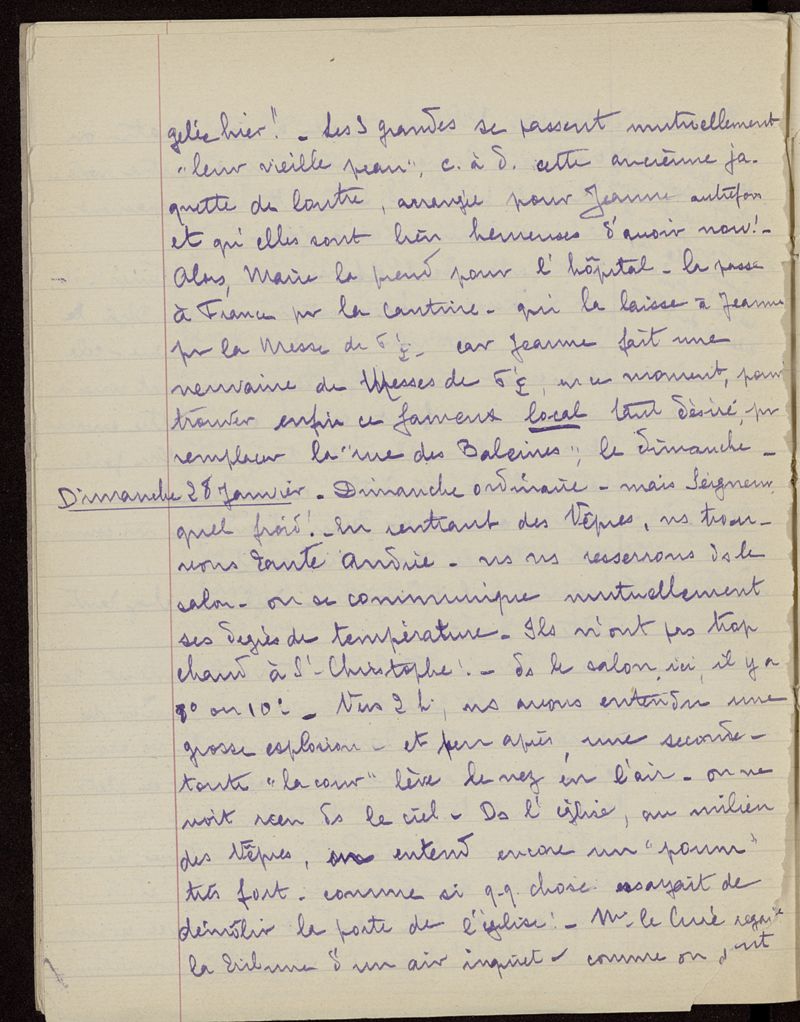 gelée hier!" - Les 3 grandes se passent mutuellement
"leur vieille peau", c. à d. cette ancienne ja-
quette de loutre, arrangée pour Jeanne autrefois
et qu'elles sont bien heureuses d'avoir now! -
Alors, Marie la prend pour l'hôpital - la passe
à France pr la cantine - qui la laisse à Jeanne
pr la Messe de 6h ½ - car Jeanne fait une
neuvaine de Messes de 6h ½, en ce moment, pour
trouver enfin ce fameux local tant désiré, pr
remplacer la "rue des Baleines", le dimanche -
Dimanche 28 Janvier - Dimanche ordinaire - mais Seigneur,
quel froid! - En rentrant des Vêpres, ns trou-
vons Tante Andrée - ns ns resserrons ds le
salon - on se communique mutuellement
ses degrés de température - Ils n'ont pas trop
chaud à St-Christophe! - ds le salon, ici, il y a
8° ou 10° - Vers 2 h, ns avons entendu une
grosse explosion - et peu après, une seconde -
toute "la cour" lève le nez en l'air - on ne
voit rien ds le ciel - Ds l'église, au milieu
des Vêpres, on entend encore un "poum"
très fort - comme si q.q. chose essayait de
démolir la porte de l'église! - Mr le Curé
la tribune d'un air inquiet - comme on